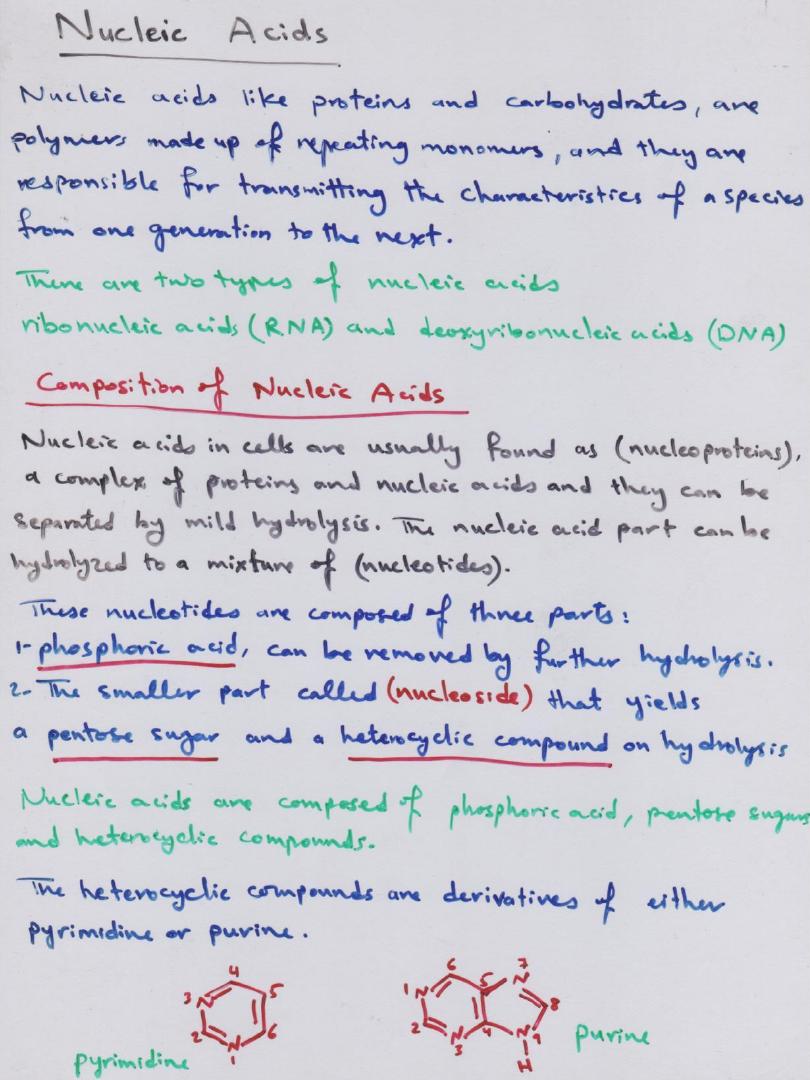 Nucleic Acids
Nucleic acids like proteins and carbohydrates, are
polymers made up of repeating monomers, and they are
responsible for transmitting the characteristics of a species
from one generation to the next.
There are two types of nucleic acids
ribonucleic acids (RNA) and deoxyribonucleic acids (DNA)
Composition of Nucleic Acids
Nucleic acids in cells are usually found as (nucleoproteins),
a complex of proteins and nucleic acids and they can be
separated by mild hydrolysis. The nucleic acid part can be
hydrolyzed to a mixture of (nucleotides).
These nucleotides are composed of three parts:
1- phosphoric acid, can be removed by further hydrolysis.
2- The smaller part called (nucleoside) that yields
a pentose sugar and a heterocyclic compound on hydrolysis
Nucleic acids are composed of phosphoric acid, pentose sugars
and heterocyclic compounds.
The heterocyclic compounds are derivatives of either
pyrimidine or purine.
4
3 N 5
2 6
N
1
pyrimidine
6 7
1 N 5 N
8
2 N 4 N 9
3
H
purine